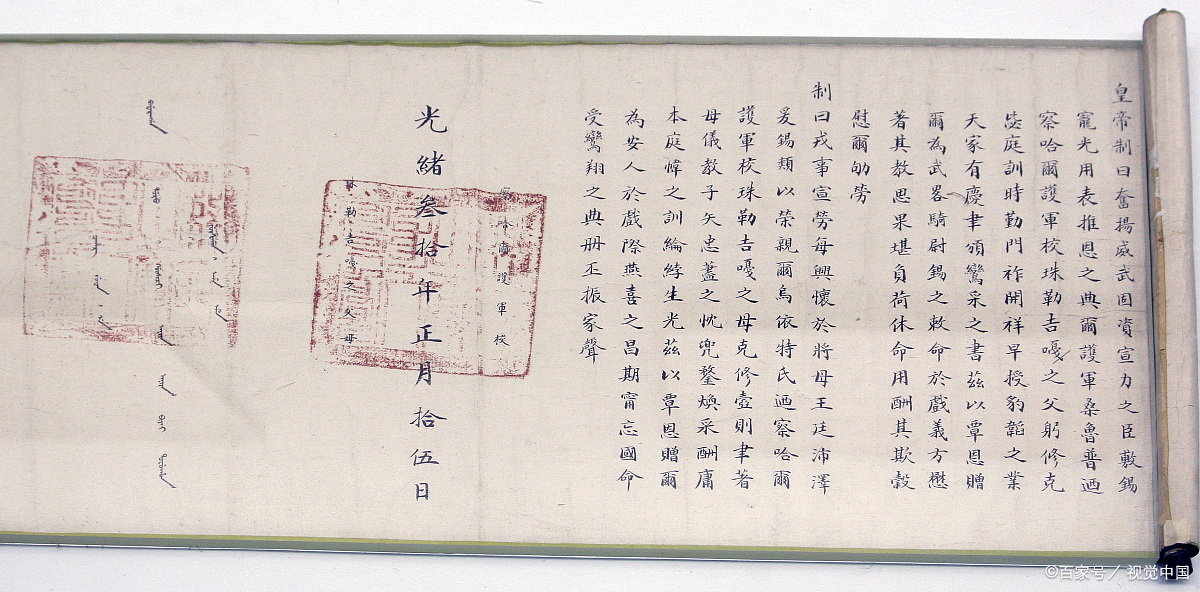 皇帝制曰奮揚威武固資宣力之臣敷錫
寵光用表推恩之典爾護軍桑魯普迺
察哈爾護軍校珠勒吉嘎之父躬修克
毖庭訓時勤門祚開祥早授豹韜之業
天家有慶聿頒鸞采之書茲以覃恩贈
爾為武畧騎尉錫之敕命於戲義方懋
著其教思果堪負荷休命用酬其欺穀
慰爾劬勞
制曰戎事宣勞每興懷於將母王廷沛澤
爰錫類以榮親爾烏依特氏迺察哈爾
護軍校珠勒吉嘎之母克修壼則聿著
母儀教子矢忠藎之忱兜鍪煥采酬庸
本庭幃之訓綸綍生光茲以覃恩贈爾
為安人於戲際燕喜之昌期甯忘國命
受鸞翔之典冊丕振家聲
察哈爾護軍校
光緒叁拾年正月拾伍日
珠勒吉嘎之父母
©百家号/ 视觉中国